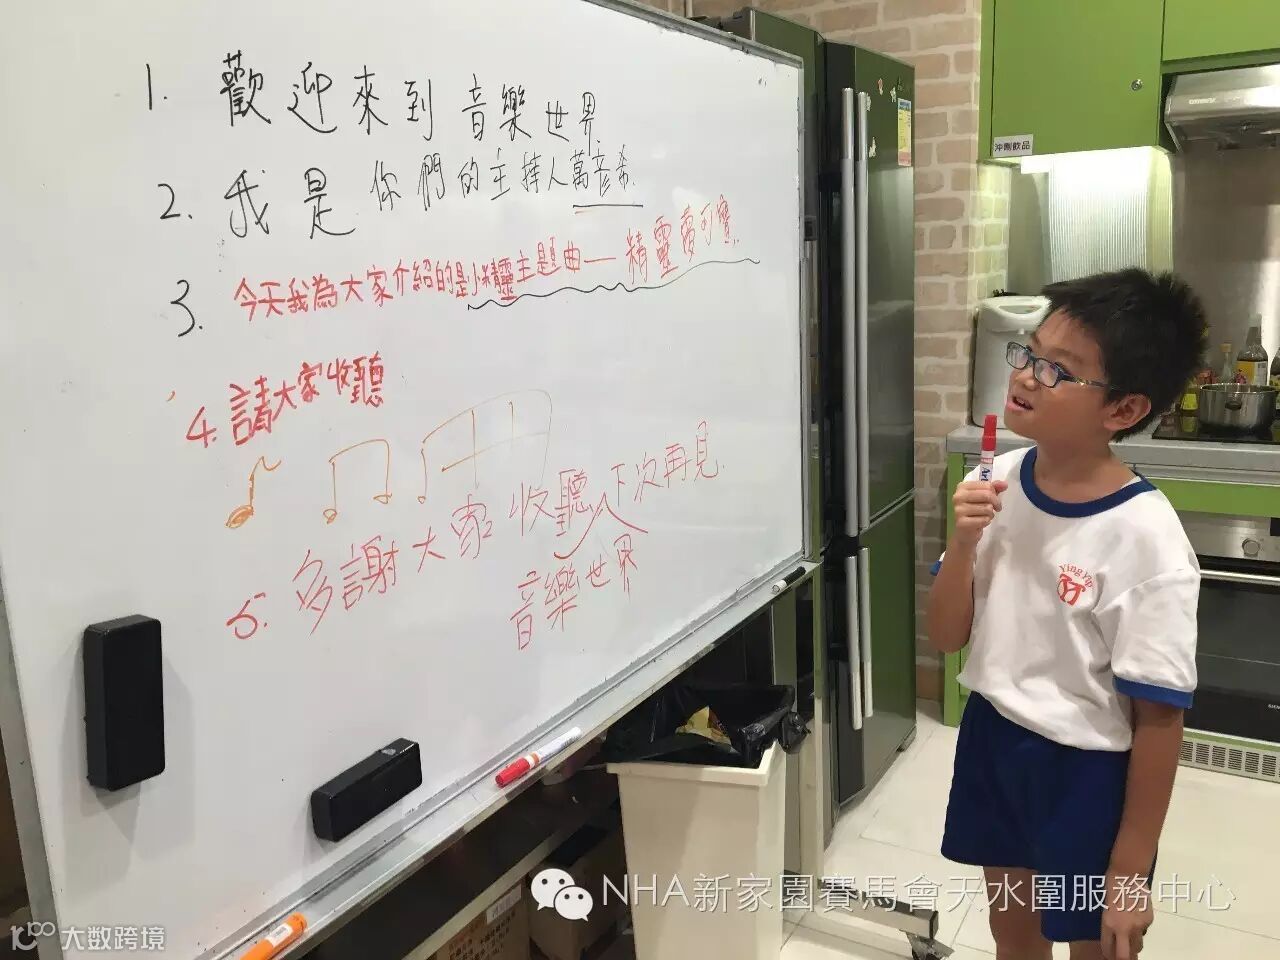 1. 歡迎來到音樂世界
2. 我是你們的主持人萬彥希
3. 今天我為大家介紹的是小精靈主題曲——精靈夢可寶
4. 請大家收聽
5. 多謝大家收聽下次再見
音樂世界
沖劑飲品
Ying Yip
NHA新家園賽馬會天水圍服務中心
大数跨境